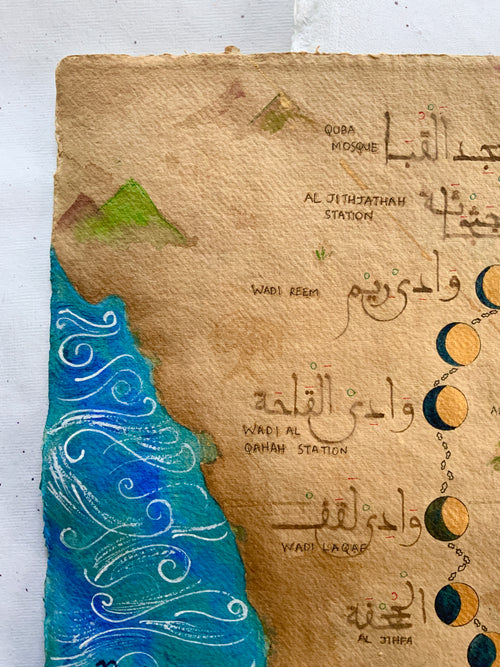 QUBA
MOSQUE
AL JITHJATHAH
STATION
WADI REEM
وادي ريم
وادي القاحة
WADI AL
QAHAH STATION
وادي لقف
WADI LAQAF
الجحفة
AL JIHFA